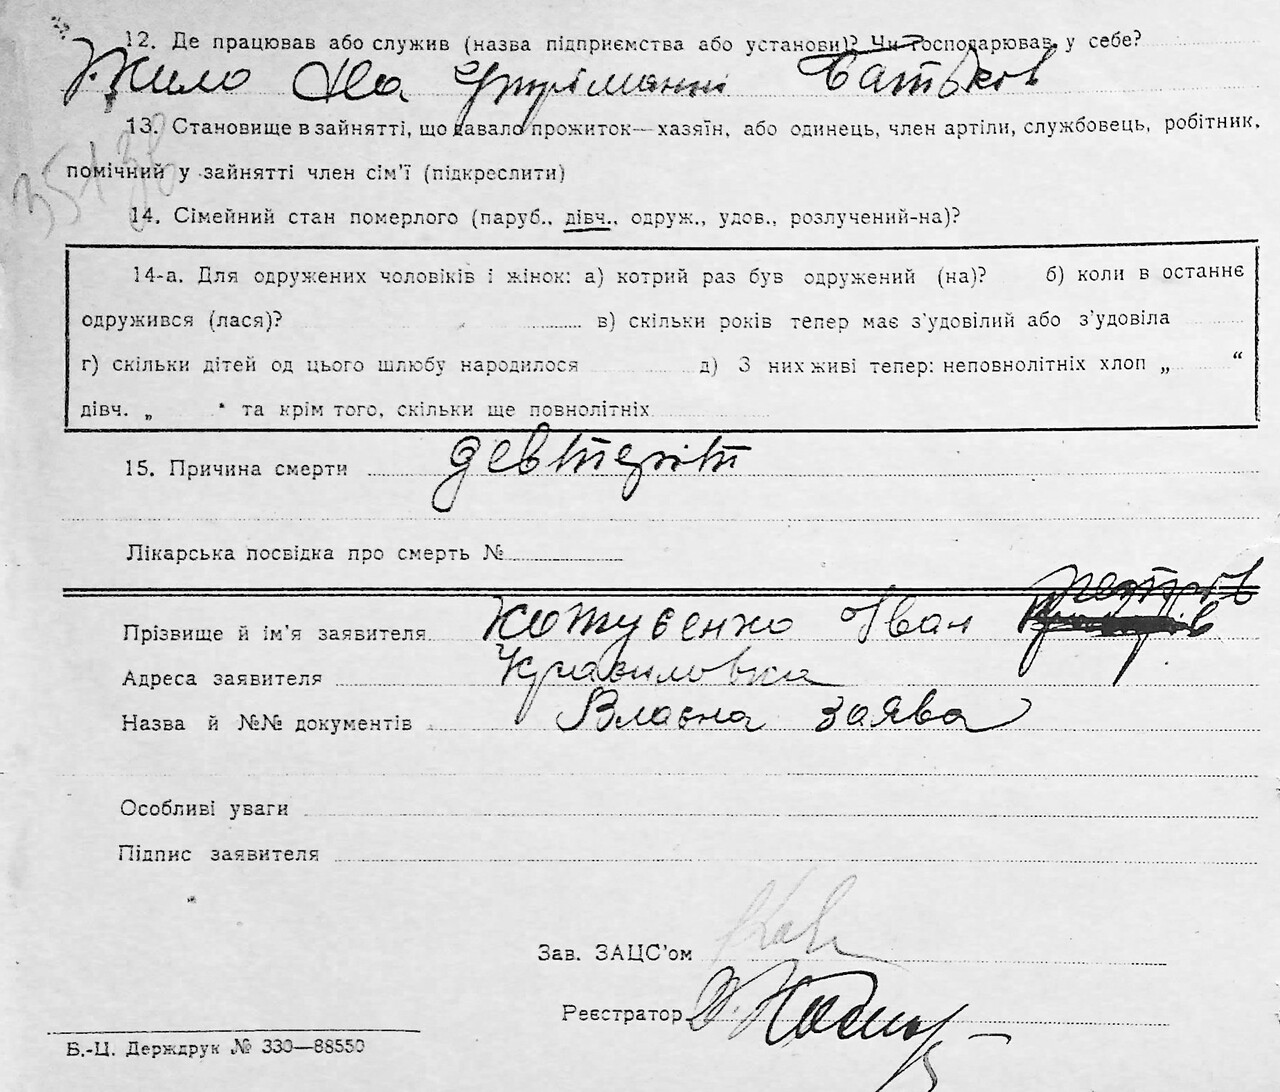 12. Де працював або служив (назва підприємства або установи)? Чи господарював у себе?
Жило на утріманні батьков
13. Становище в зайнятті, що давало прожиток—хазяїн, або одинець, член артіли, службовець, робітник,
помічний у зайнятті член сім'ї (підкреслити)
14. Сімейний стан померлого (паруб., дівч., одруж., удов., розлучений-на)?
14-а. Для одружених чоловіків і жінок: а) котрий раз був одружений (на)? б) коли в останнє
одружився (лася)? в) скільки років тепер має з'удовілий або з'удовіла
г) скільки дітей од цього шлюбу народилося д) З них живі тепер: неповнолітніх хлоп „ “
дівч. „ " та крім того, скільки ще повнолітніх
15. Причина смерти девтеріт
Лікарська посвідка про смерть №
Петров
Прізвище й ім'я заявителя Кожусенко Іван
Адреса заявителя Красиловка
Назва й №№ документів Власна заява
Особливі уваги
Підпис заявителя
Зав. ЗАЦС'ом
Реєстратор
Б.-Ц. Держдрук № 330—88550